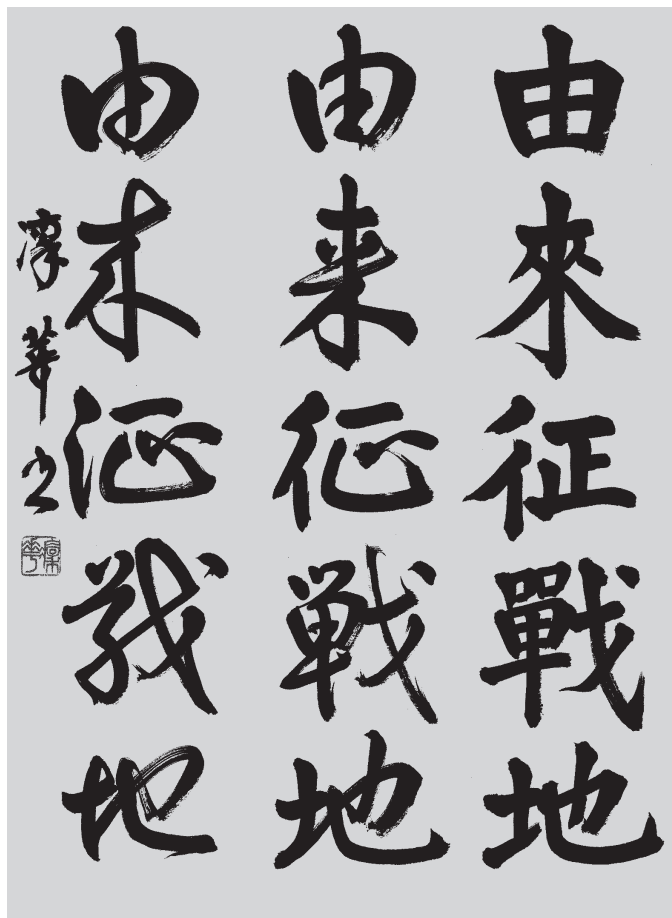 由來征戰地
由来征戦地
由来征戦地
華書